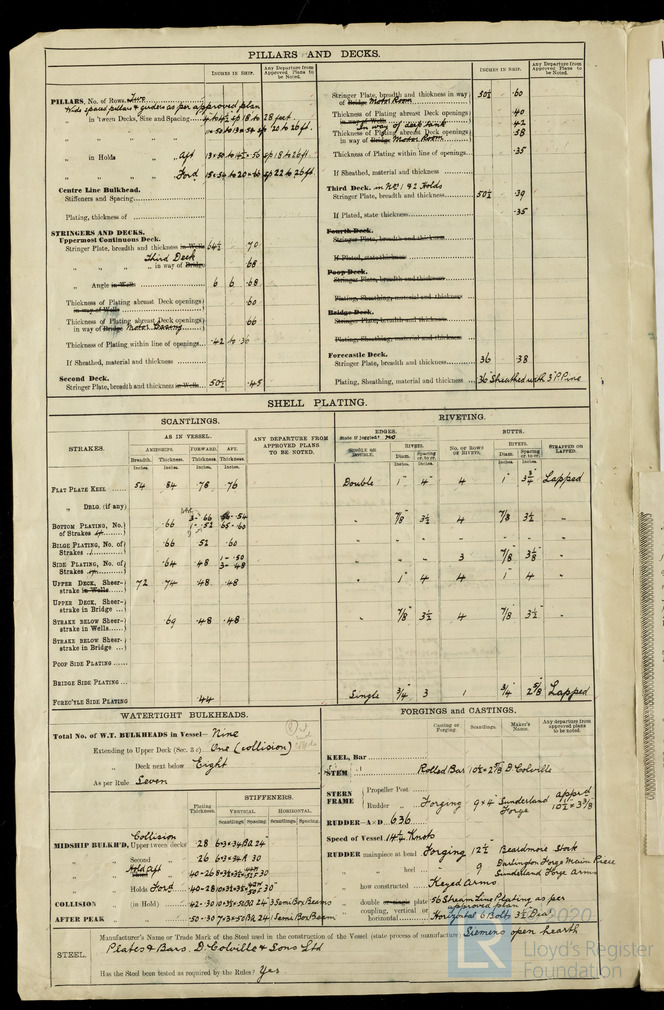 PILLARS AND DECKS.
INCHES IN SHIP.
Any Departure from Approved Plans to be Noted.
PILLARS, No. of Rows, Two
Wide spaced pillars & girders as per approved plan
„ in 'tween Decks, Size and Spacing
„ in Holds „ Aft
„ „ „ Ford
Centre Line Bulkhead.
Stiffeners and Spacing
Plating, thickness of
STRINGERS AND DECKS.
Uppermost Continuous Deck.
Stringer Plate, breadth and thickness in Wells 64½ .70
Third Deck
„ „ „ „ in way of Bridge .68
„ Angle in Wells 6 6 .68
Thickness of Plating abreast Deck openings in way of Wells .60
Thickness of Plating abreast Deck openings in way of Bridge Motor Casing .66
Thickness of Plating within line of openings .42 to .36
If Sheathed, material and thickness
Second Deck.
Stringer Plate, breadth and thickness in Wells 50½ .45
INCHES IN SHIP.
Any Departure from Approved Plans to be Noted.
Stringer Plate, breadth and thickness in way of Bridge Motor Room 50½ .60
Thickness Plating abreast Deck openings in way of Wells .40
In way of deep tank .42
Thickness Plating abreast Deck openings in way of Bridge Motor Room .58
Thickness of Plating within line of openings .35
If Sheathed, material and thickness
Third Deck. in Nº 1 & 2 Holds
Stringer Plate, breadth and thickness 50½ .39
If Plated, state thickness .35
Fourth Deck.
Stringer Plate, breadth and thickness
If Plated, state thickness
Poop Deck.
Stringer Plate, breadth and thickness
Plating, Sheathing, material and thickness
Bridge Deck.
Stringer Plate, breadth and thickness
Plating, Sheathing, material and thickness
Forecastle Deck.
Stringer Plate, breadth and thickness 36 .38
Plating, Sheathing, material and thickness .36 Sheathed with 3" P. Pine
SHELL PLATING.
SCANTLINGS.
RIVETING.
STRAKES.
AS IN VESSEL.
AMIDSHIPS. FORWARD. AFT.
Breadth. Thickness. Thickness. Thickness.
Inches. Inches. Inches. Inches.
ANY DEPARTURE FROM APPROVED PLANS TO BE NOTED.
EDGES.
State if joggled? No
SINGLE OR DOUBLE.
RIVETS.
Diam. Spacing cr. to cr.
Inches. Inches.
NO. OF ROWS OF RIVETS.
BUTTS.
RIVETS.
Diam. Spacing cr. to cr.
Inches. Inches.
STRAPPED OR LAPPED.
FLAT PLATE KEEL 54 .84 .78 .76 Double 1" 4" 4 1" 3¾" Lapped
„ DBLG. (if any)
BOTTOM PLATING, No. of Strakes 4 .66 „ 7/8 3½ 4 7/8 3½ „
BILGE PLATING, No. of Strakes 1 .66 .52 .60
SIDE PLATING, No. of Strakes 4 .64 .48 1-.50 3-.48 „ „ „ 3 7/8 3 1/8 „
UPPER DECK, Sheer-strake in Wells 72 .74 .48 .48 „ 1" 4 4 1" 4 „
UPPER DECK, Sheer-strake in Bridge
STRAKE BELOW SHEER-strake in Wells .69 .48 .48 „ 7/8 3½ 4 7/8 3½ „
STRAKE BELOW SHEER-strake in Bridge
POOP SIDE PLATING
BRIDGE SIDE PLATING
FOREC'TLE SIDE PLATING .44 Single 3/4 3 1 3/4 2 5/8 Lapped
WATERTIGHT BULKHEADS.
Total No. of W.T. BULKHEADS in Vessel— Nine
Extending to Upper Deck (Sec. 3 c) One (collision)
„ Deck next below Eight
As per Rule Seven
Plating Thickness.
STIFFENERS.
VERTICAL. HORIZONTAL.
Scantlings Spacing. Scantlings Spacing.
Collision
MIDSHIP BULKH'D, Upper 'tween decks .28
„ Second „ .26
„ Hold Aft „
„ Holds Ford.
COLLISION (in Hold)
AFTER PEAK
FORGINGS and CASTINGS.
Casting or Forging. Scantlings. Maker's Name. Any departure from approved plans to be noted.
KEEL, Bar
STEM Rolled Bar 10½ × 2 7/8 D Colville
STERN FRAME Propeller Post
Rudder „ Forging 9 × 4 Sunderland Forge appr'd
RUDDER—A × D 636
Speed of Vessel 14½ Knots
RUDDER mainpiece at head Forging 12½ Beardmore Stock
„ heel 9 Darlington Forge Main Piece
Sunderland Forge Arms
how constructed Keyed Arms
double or single plate .56 Stream Line Plating as per approved plan
coupling, vertical or horizontal Horizontal 6 Bolts 3½ Dia
STEEL.
Manufacturer's Name or Trade Mark of the Steel used in the construction of the Vessel (state process of manufacture) Siemens open hearth
Plates & Bars. D. Colville & Sons Ltd
Has the Steel been tested as required by the Rules? Yes
2020
LR
Lloyd's Register
Foundation